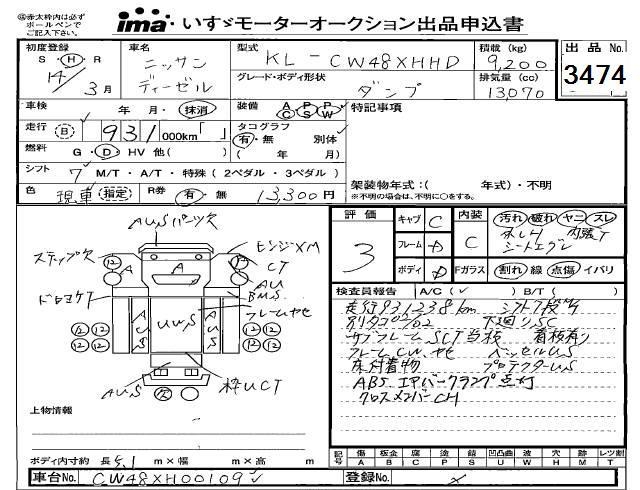 ㊟赤太枠内は必ず
ボールペンで
ご記入下さい。
ima いすゞモーターオークション出品申込書
初度登録 S・H・R 14年3月
車名 ニッサン ディーゼル
型式 KL-CW48XHHD
積載(kg) 9,200
出品No. 3474
グレード・ボディ形状 ダンプ
排気量(cc) 13070
車検 年 月・抹消
装備 AC PS PW
特記事項
走行 B 931,000km「 」
タコグラフ 有・無 別体
燃料 G・D・HV 他( )
( 年 月)
シフト 7 M/T・A/T・特殊(2ペダル・3ペダル)
色 現車(指定)
R券 有・無 13,300円
架装物年式:( 年式)・不明
※不明の場合は、不明に○をする。
評価 3
キャブ C
フレーム D
ボディ D
内装 C
汚れ 破れ ヤニ スレ
シートコゲ
Fガラス 割れ 線 点傷 イバリ
検査員報告 A/C(✓) B/T( )
走行931238km シフト7段
別タコ 下廻りSC
サブフレームSCT 看板有り
フレームCW ベッセルUS
床付着物 プロテクターUS
ABS エアバークランプ点灯
クロスメンバーCH
AUSバンパ欠
ステップ欠
エンジンXM
CT
AU
BMS
ドロヨケT
フレームヤセ
A
AUS
UWS
AUS
AUS
枠UCT
欠
上物情報
ボディ内寸約 長5.1m×幅 m×高 m
記号 傷 A 板金 B 腐 C 塗 P 錆 S 凹凸曲 U 波 W 穴 H 跡 M レツ割 T
車台No. CW48XH00109
登録No.